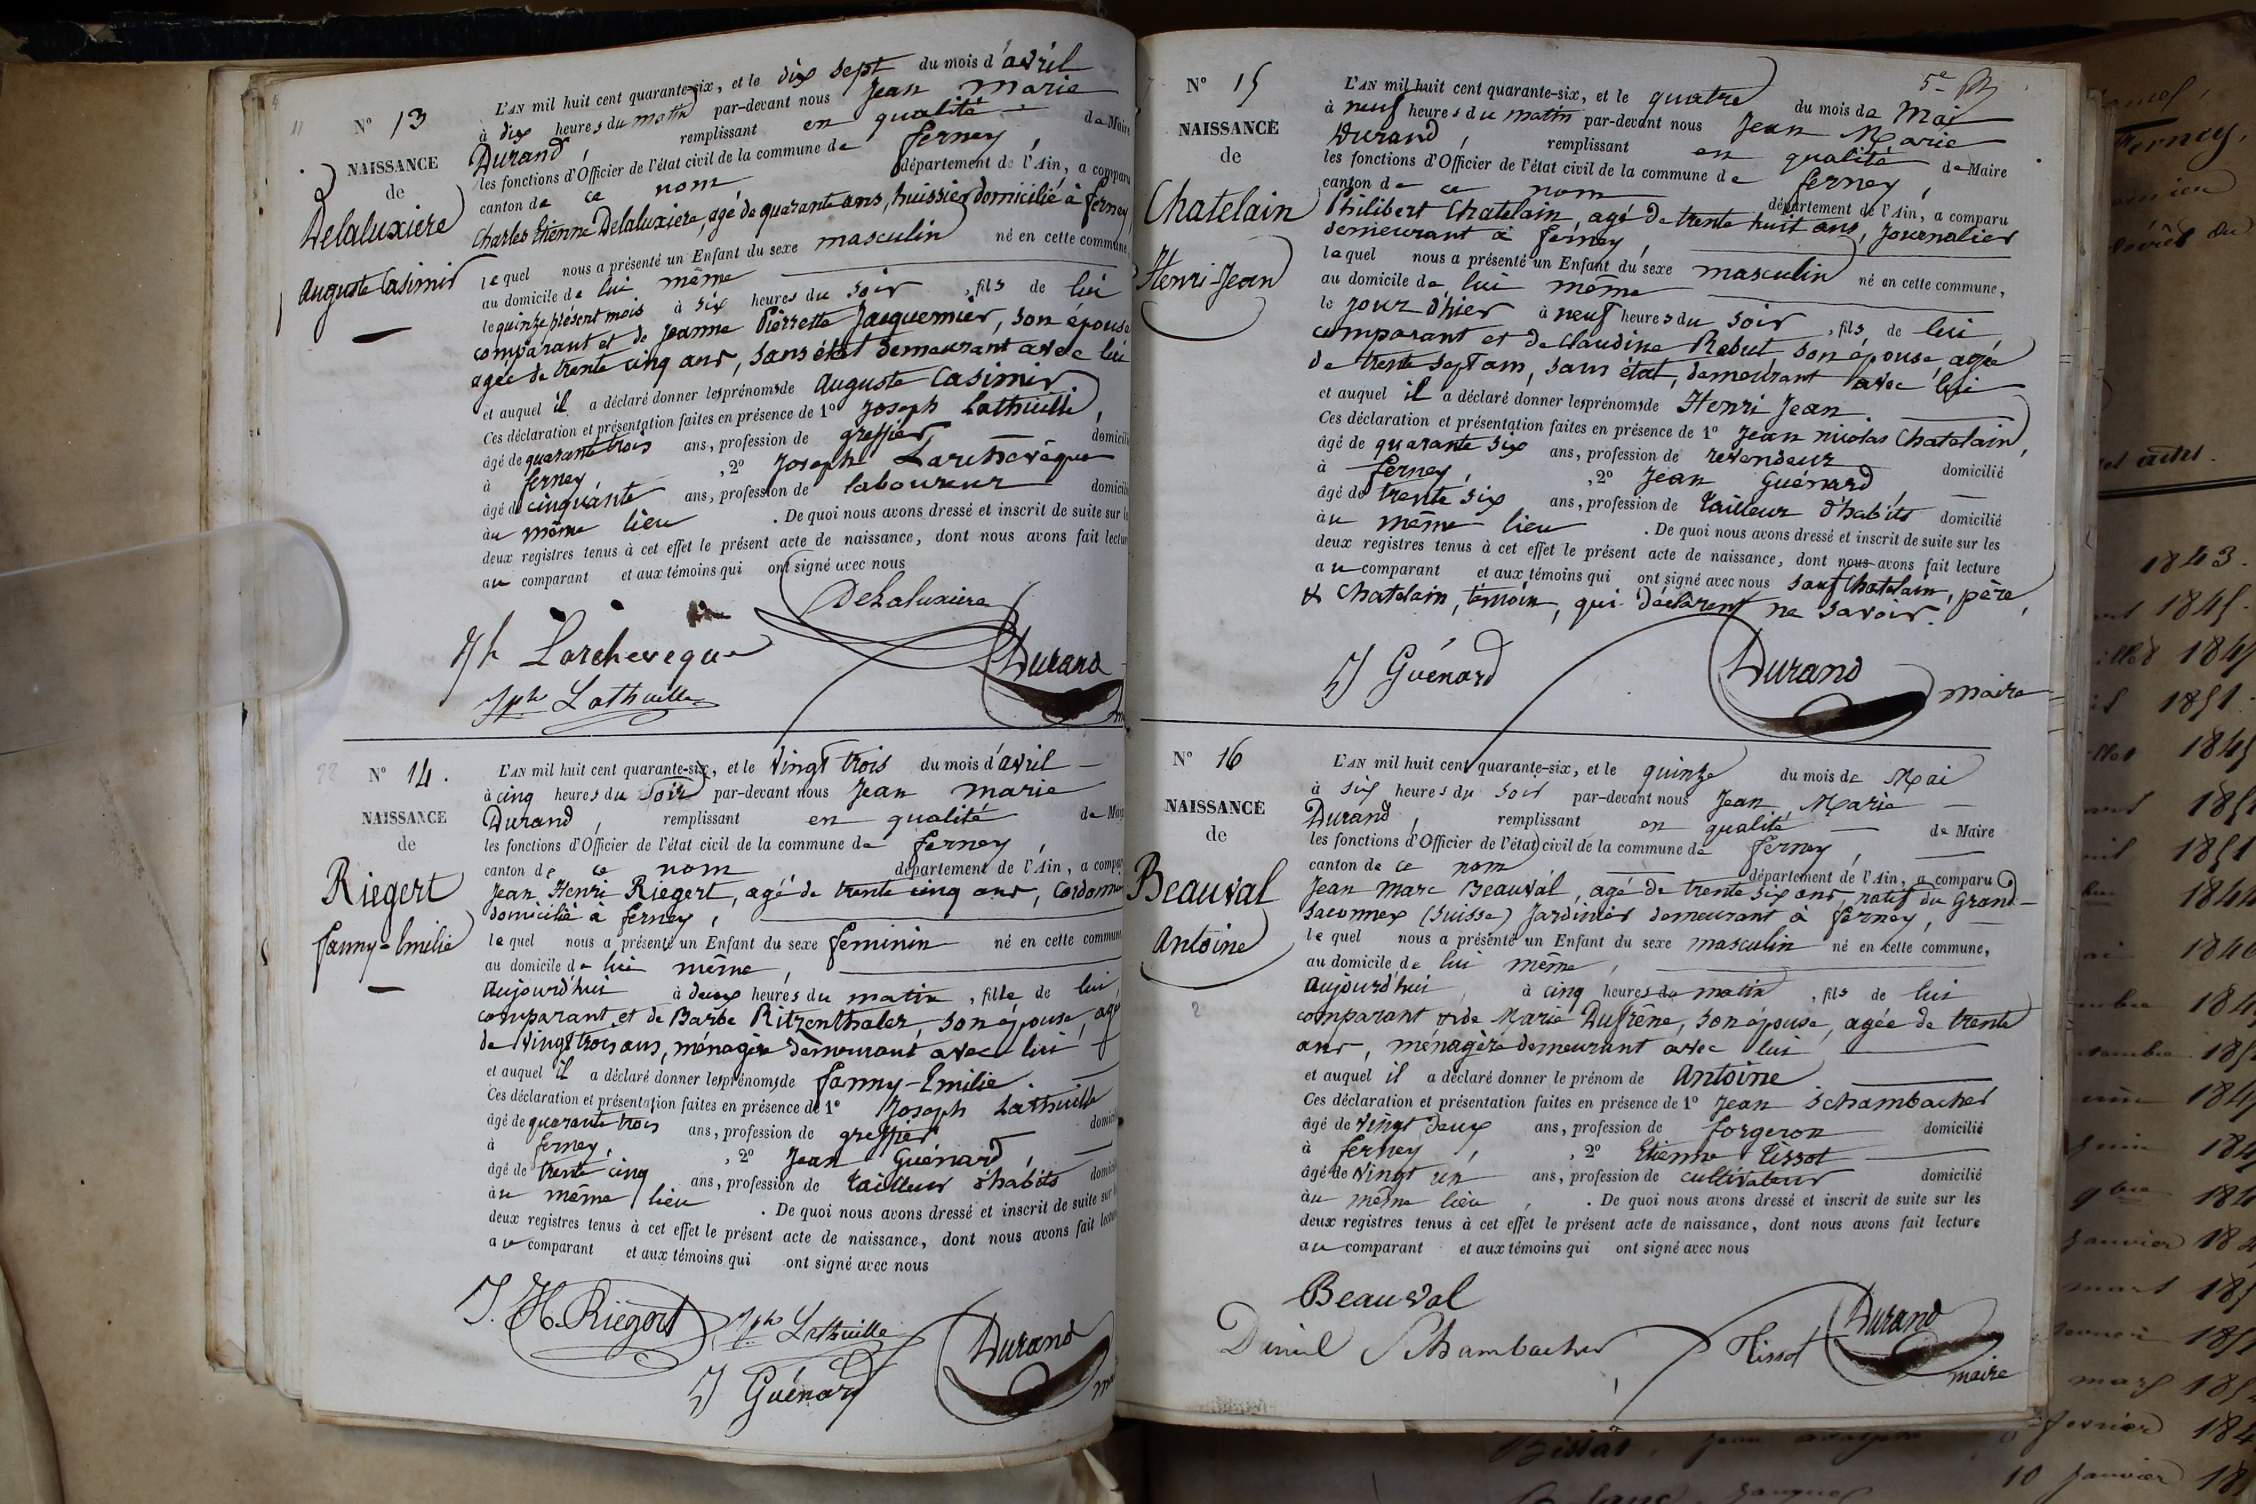 N° 13
NAISSANCE
de
Delaluxiere
Auguste Casimir
L'AN mil huit cent quarante-six, et le dix sept du mois d'avril
à dix heures du matin par-devant nous Jean Marie
Durand, remplissant en qualité de Maire
les fonctions d'Officier de l'état civil de la commune de ferney,
canton de ce nom département de l'Ain, a comparu
Charles Etienne Delaluxiere, agé de quarante ans, huissier domicilié à ferney,
lequel nous a présenté un Enfant du sexe masculin né en cette commune,
au domicile de lui même
le quinze présent mois à six heures du soir, fils de lui
comparant et de Jeanne Pierrette Jacquemier, son épouse
agée de trente cinq ans, sans état demeurant avec lui
et auquel il a déclaré donner les prénoms de Auguste Casimir
Ces déclaration et présentation faites en présence de 1° Joseph Lathuille,
âgé de quarante trois ans, profession de greffier, domicilié
à ferney, 2° Joseph Larchevêque
âgé de cinquante ans, profession de laboureur domicilié
au même lieu. De quoi nous avons dressé et inscrit de suite sur les
deux registres tenus à cet effet le présent acte de naissance, dont nous avons fait lecture
au comparant et aux témoins qui ont signé avec nous
DeLaluxiere
Jh Larcheveque
Durand
Jph Lathuille
N° 14.
NAISSANCE
de
Riegert
fanny-Emilie
L'AN mil huit cent quarante-six, et le vingt trois du mois d'avril
à cinq heures du soir par-devant nous Jean marie
Durand, remplissant en qualité de Maire
les fonctions d'Officier de l'état civil de la commune de ferney,
canton de ce nom département de l'Ain, a comparu
Jean Henri Riegert, agé de trente cinq ans, Cordonnier
domicilié à ferney,
lequel nous a présenté un Enfant du sexe feminin né en cette commune
au domicile de lui même,
aujourd'hui à deux heures du matin, fille de lui
comparant et de Barbe Ritzenthaler, son épouse, agée
de vingt trois ans, ménagère demeurant avec lui
et auquel il a déclaré donner les prénoms de fanny-Emilie.
Ces déclaration et présentation faites en présence de 1° Joseph Lathuille
âgé de quarante trois ans, profession de greffier domicilié
à ferney, 2° Jean Guénard,
âgé de trente cinq ans, profession de tailleur d'habits domicilié
au même lieu. De quoi nous avons dressé et inscrit de suite sur les
deux registres tenus à cet effet le présent acte de naissance, dont nous avons fait lecture
au comparant et aux témoins qui ont signé avec nous
J. H. Riegert Jph Lathuille Durand
J Guénard
N° 15
NAISSANCE
de
Chatelain
Henri-Jean
L'AN mil huit cent quarante-six, et le quatre du mois de Mai
à neuf heures du matin par-devant nous Jean Marie
Durand, remplissant en qualité de Maire
les fonctions d'Officier de l'état civil de la commune de ferney,
canton de ce nom département de l'Ain, a comparu
Philibert Chatelain, agé de trente huit ans, journalier
demeurant à ferney,
lequel nous a présenté un Enfant du sexe masculin né en cette commune,
au domicile de lui même
le jour d'hier à neuf heures du soir, fils de lui
comparant et de Claudine Rebut, son épouse, agée
de trente sept ans, sans état, demeurant avec lui
et auquel il a déclaré donner les prénoms de Henri Jean.
Ces déclaration et présentation faites en présence de 1° Jean nicolas Chatelain,
âgé de quarante six ans, profession de revendeur domicilié
à ferney, 2° Jean Guénard,
âgé de trente six ans, profession de tailleur d'habits domicilié
au même lieu. De quoi nous avons dressé et inscrit de suite sur les
deux registres tenus à cet effet le présent acte de naissance, dont nous avons fait lecture
au comparant et aux témoins qui ont signé avec nous sauf Chatelain, père,
& Chatelain, témoin, qui déclarent ne savoir.
J Guénard
Durand
maire
N° 16
NAISSANCE
de
Beauval
Antoine
L'AN mil huit cent quarante-six, et le quinze du mois de Mai
à six heures du soir par-devant nous Jean Marie
Durand, remplissant en qualité de Maire
les fonctions d'Officier de l'état civil de la commune de ferney,
canton de ce nom département de l'Ain, a comparu
Jean Marc Beauval, agé de trente six ans, natif du Grand-
Saconnex (Suisse) Jardinier demeurant à ferney,
lequel nous a présenté un Enfant du sexe masculin né en cette commune,
au domicile de lui même,
aujourd'hui à cinq heures du matin, fils de lui
comparant & de Marie Dufrène, son épouse, agée de trente
ans, ménagère demeurant avec lui
et auquel il a déclaré donner le prénom de Antoine
Ces déclaration et présentation faites en présence de 1° Jean Schambacher
âgé de vingt deux ans, profession de forgeron domicilié
à ferney, 2° Etienne Tissot
âgé de vingt un ans, profession de cultivateur domicilié
au même lieu, De quoi nous avons dressé et inscrit de suite sur les
deux registres tenus à cet effet le présent acte de naissance, dont nous avons fait lecture
au comparant et aux témoins qui ont signé avec nous
Beauval
Schambacher Tissot Durand
maire
ferney,
1843.
1845.
1851.
1845
1851
1844
1846
juin
janvier
mars
mars
fevrier
10 janvier